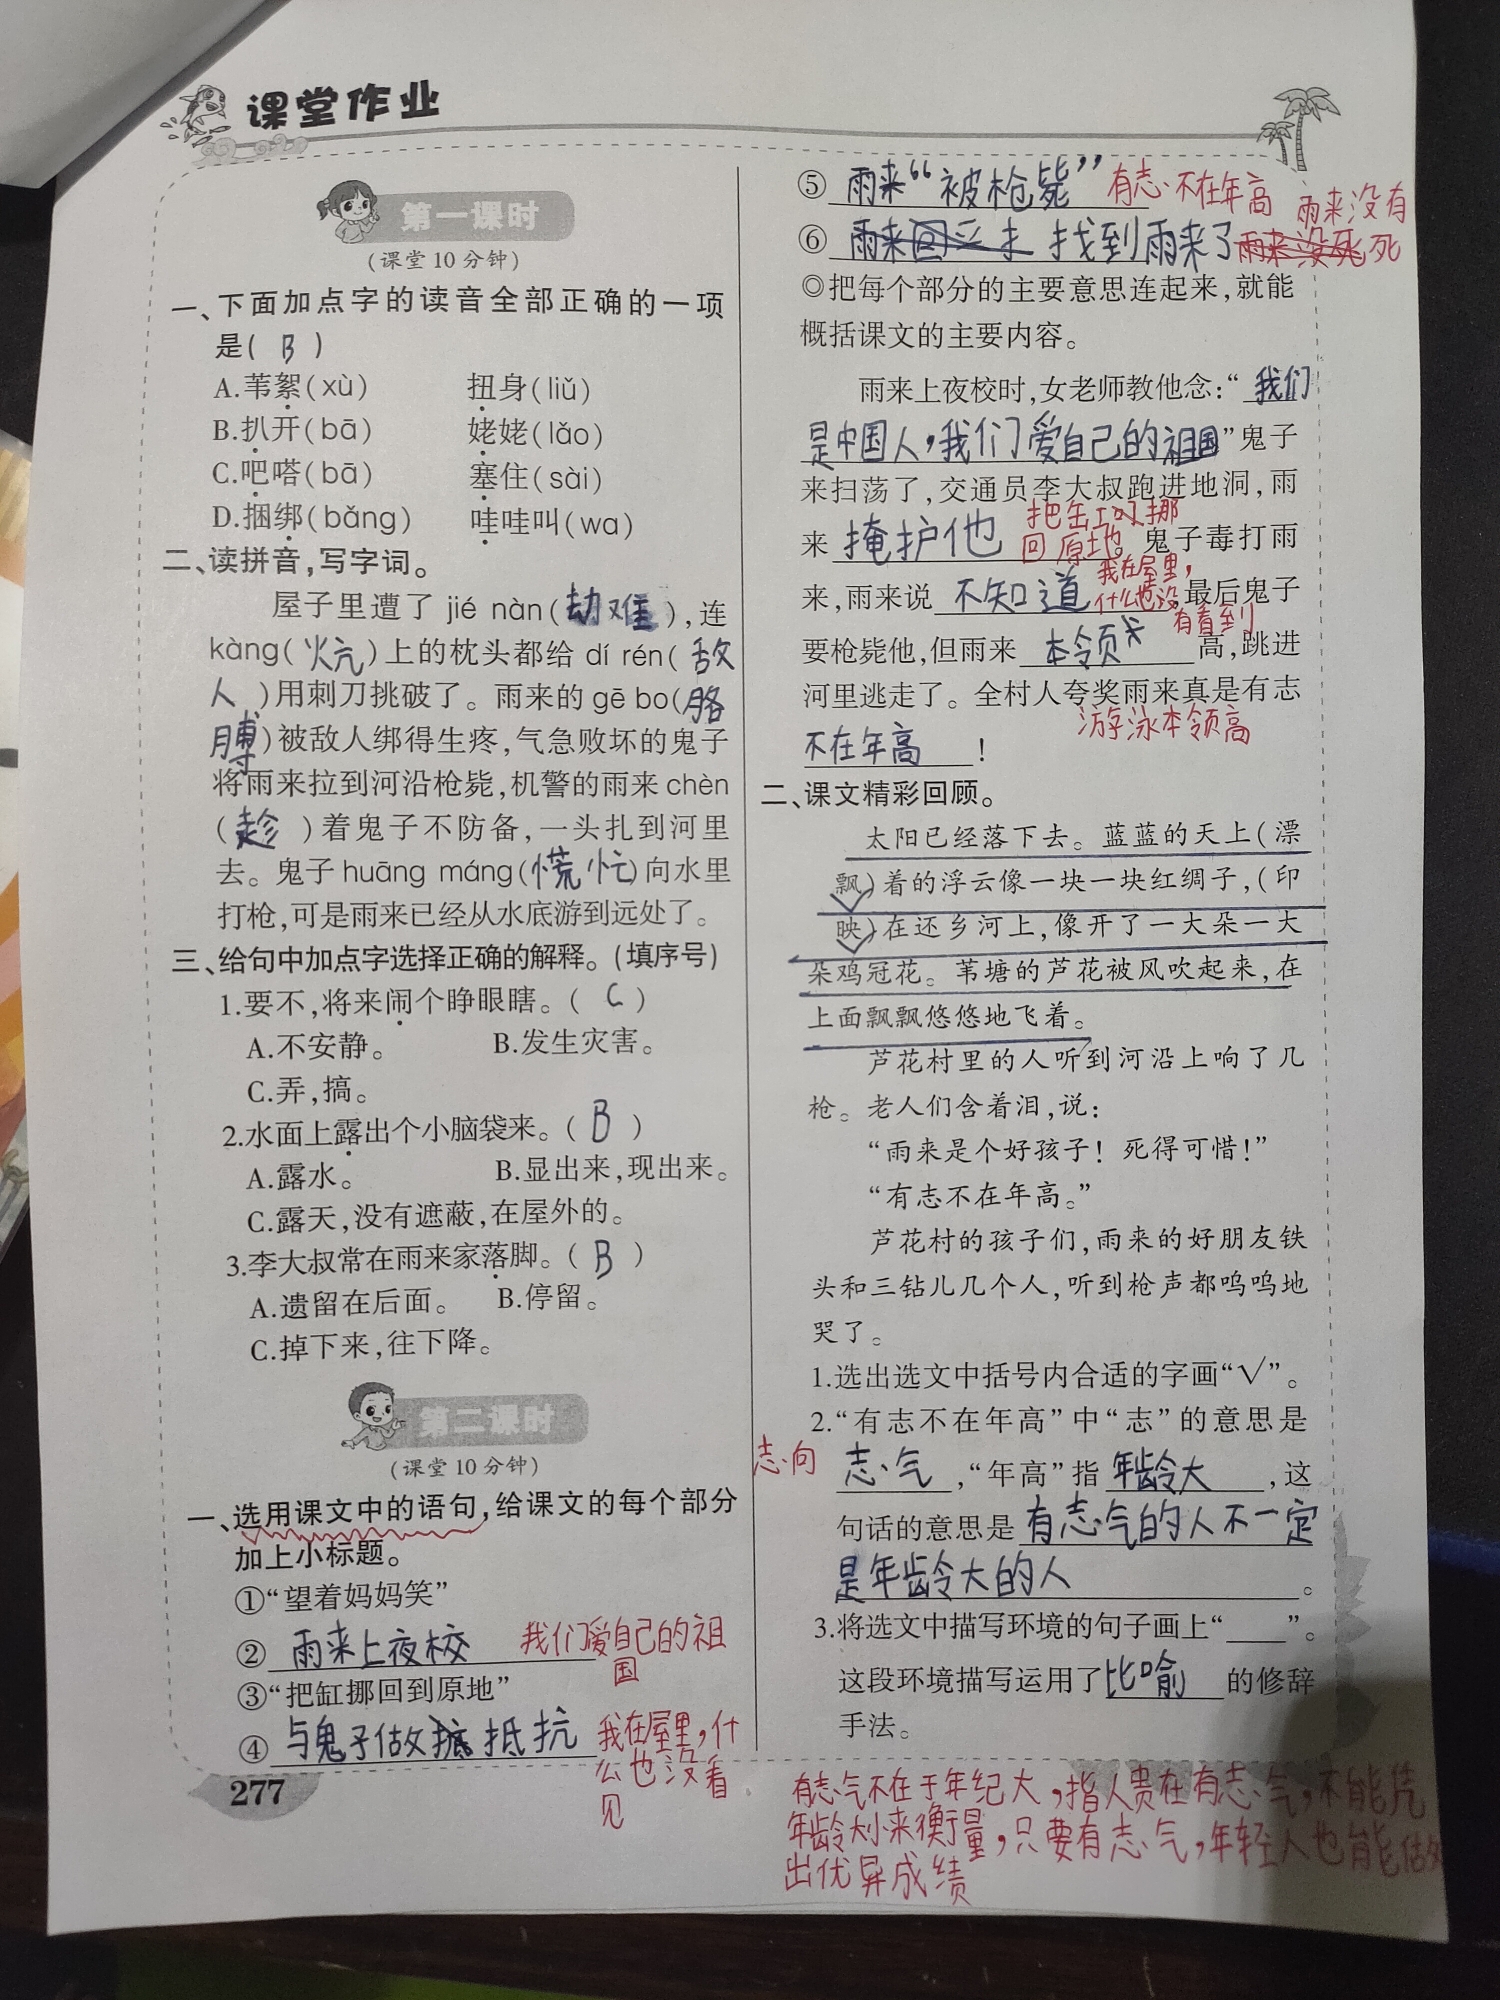 课堂作业
第一课时
(课堂10分钟)
一、下面加点字的读音全部正确的一项
是( B )
A.苇絮(xù) 扭身(liǔ)
B.扒开(bā) 姥姥(lǎo)
C.吧嗒(bā) 塞住(sài)
D.捆绑(bǎng) 哇哇叫(wa)
二、读拼音,写字词。
屋子里遭了 jié nàn(劫难),连
kàng(炕)上的枕头都给 dí rén(敌
人)用刺刀挑破了。雨来的 gē bo(胳
膊)被敌人绑得生疼,气急败坏的鬼子
将雨来拉到河沿枪毙,机警的雨来 chèn
(趁)着鬼子不防备,一头扎到河里
去。鬼子 huāng máng(慌忙)向水里
打枪,可是雨来已经从水底游到远处了。
三、给句中加点字选择正确的解释。(填序号)
1.要不,将来闹个睁眼瞎。( C )
A.不安静。 B.发生灾害。
C.弄,搞。
2.水面上露出个小脑袋来。( B )
A.露水。 B.显出来,现出来。
C.露天,没有遮蔽,在屋外的。
3.李大叔常在雨来家落脚。( B )
A.遗留在后面。 B.停留。
C.掉下来,往下降。
第二课时
(课堂10分钟)
一、选用课文中的语句,给课文的每个部分
加上小标题。
①“望着妈妈笑”
② 雨来上夜校 我们爱自己的祖
国
③“把缸挪回到原地”
④ 与鬼子做抵抗 我在屋里,什
么也没看
见
277
⑤ 雨来“被枪毙” 有志不在年高
雨来没有
⑥ 雨来 找到雨来了 雨来没死 死
◎把每个部分的主要意思连起来,就能
概括课文的主要内容。
雨来上夜校时,女老师教他念:“我们
是中国人,我们爱自己的祖国”鬼子
来扫荡了,交通员李大叔跑进地洞,雨
把缸挪
来 掩护他 回原地。鬼子毒打雨
我在屋里,
来,雨来说 不知道 什么也没 最后鬼子
有看到
要枪毙他,但雨来 本领 高,跳进
河里逃走了。全村人夸奖雨来真是有志
游泳本领高
不在年高!
二、课文精彩回顾。
太阳已经落下去。蓝蓝的天上(漂
飘)着的浮云像一块一块红绸子,(印
映)在还乡河上,像开了一大朵一大
朵鸡冠花。苇塘的芦花被风吹起来,在
上面飘飘悠悠地飞着。
芦花村里的人听到河沿上响了几
枪。老人们含着泪,说:
“雨来是个好孩子!死得可惜!”
“有志不在年高。”
芦花村的孩子们,雨来的好朋友铁
头和三钻儿几个人,听到枪声都呜呜地
哭了。
1.选出选文中括号内合适的字画“√”。
2.“有志不在年高”中“志”的意思是
志向 志气,“年高”指 年龄大,这
句话的意思是 有志气的人不一定
是年龄大的人。
3.将选文中描写环境的句子画上“____”。
这段环境描写运用了 比喻 的修辞
手法。
有志气不在于年纪大,指人贵在有志气,不能凭
年龄大小来衡量,只要有志气,年轻人也能
出优异成绩